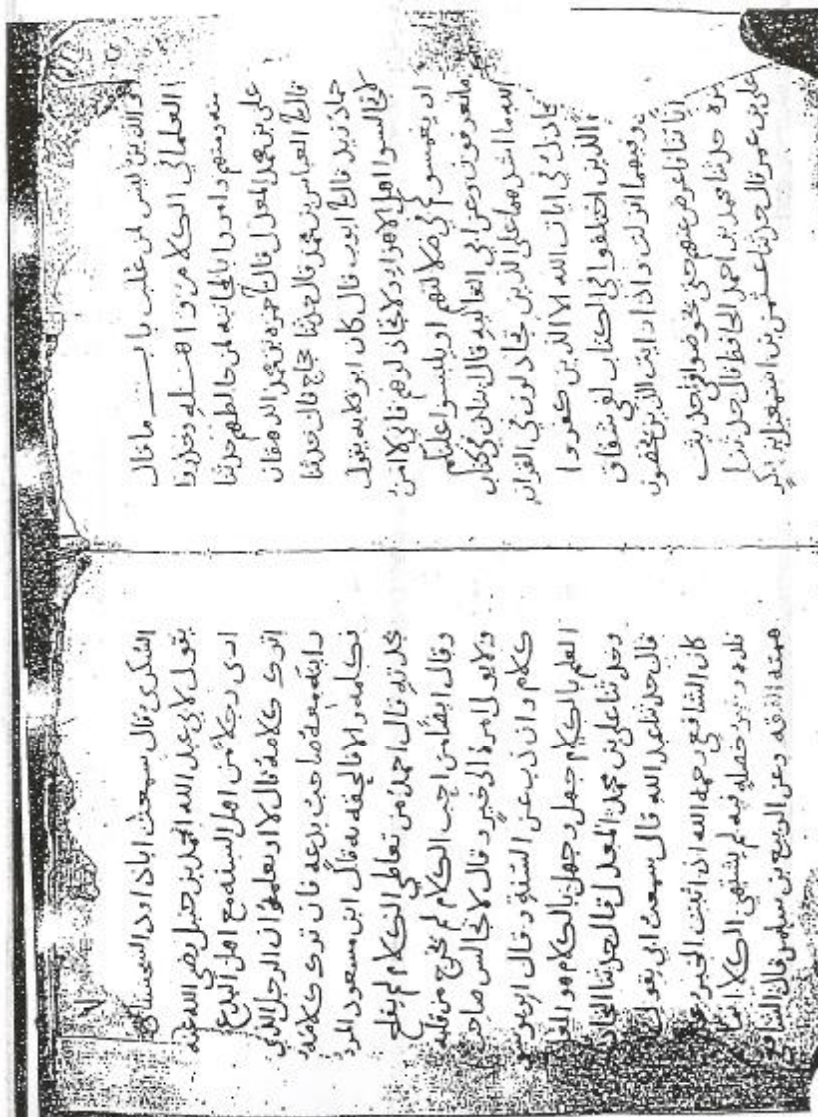 والذين ليس لمن غلب باب ما قال
العلما في الكلام و اهله وحذروا
منه ومنهم وامروا بالمجانبه لمن خالطهم حدثنا
علي بن محمد المعدل قال حمزه بن محمد الدهقان
قال العباس بن محمد قال حدثنا حجاج قال حدثنا
حماد زيد قال ايوب قال كان ابو قلابه يقول
لا تجالسوا اهل الاهواء ولا تجادلوهم فاني لا امن
ان يغمسوكم في ضلالتهم او يلبسوا عليكم
ما تعرفون وعن ابي العاليه قال ايتان في كتاب
الله ما اشدهما على الذين يجادلون في القران
يجادل في ايات الله الا الذين كفروا
الذين اختلفوا في الكتاب لفي شقاق
وفيهما انزلت واذا رايت الذين يخوضون
اياتنا فاعرض عنهم حتى يخوضوا في حديث
حدثنا محمد بن احمد الحافظ قال حدثنا
علي بن عمر قال حدثنا عثمن بن اسمعيل بن بكر
السكري قال سمعت ابا داود السجستاني
يقول لابي عبد الله احمد بن حنبل رضي الله عنه
ارى رجلا من اهل السنه مع اهل البدع
اترك كلامه قال لا او تعلمه ان الرجل الذي
رايته معه صاحب بدعه فان ترك كلامه
فكلمه والا فالحقه به قال ابن مسعود المرء
بخدنه قال احمد من تعاطى الكلام لم يفلح
وقال ايضا من احب الكلام لم يخرج من قلبه
ولا يؤل امره الى خير وقال لا تجالس صاحب
كلام وان ذب عن السنة وقال ابو يوسف
العلم بالكلام جهل وجهل بالكلام هو العلم
وحدثنا علي بن محمد المعدل قال حدثنا
قال حدثنا عبد الله قال سمعت ابي يقول
كان الشافعي رحمه الله اذا اثبت الخبر
قلده وخير خصله فيه لم يشتهي الكلام انما
همته الفقه وعن الربيع بن سليمن قال الشافعي